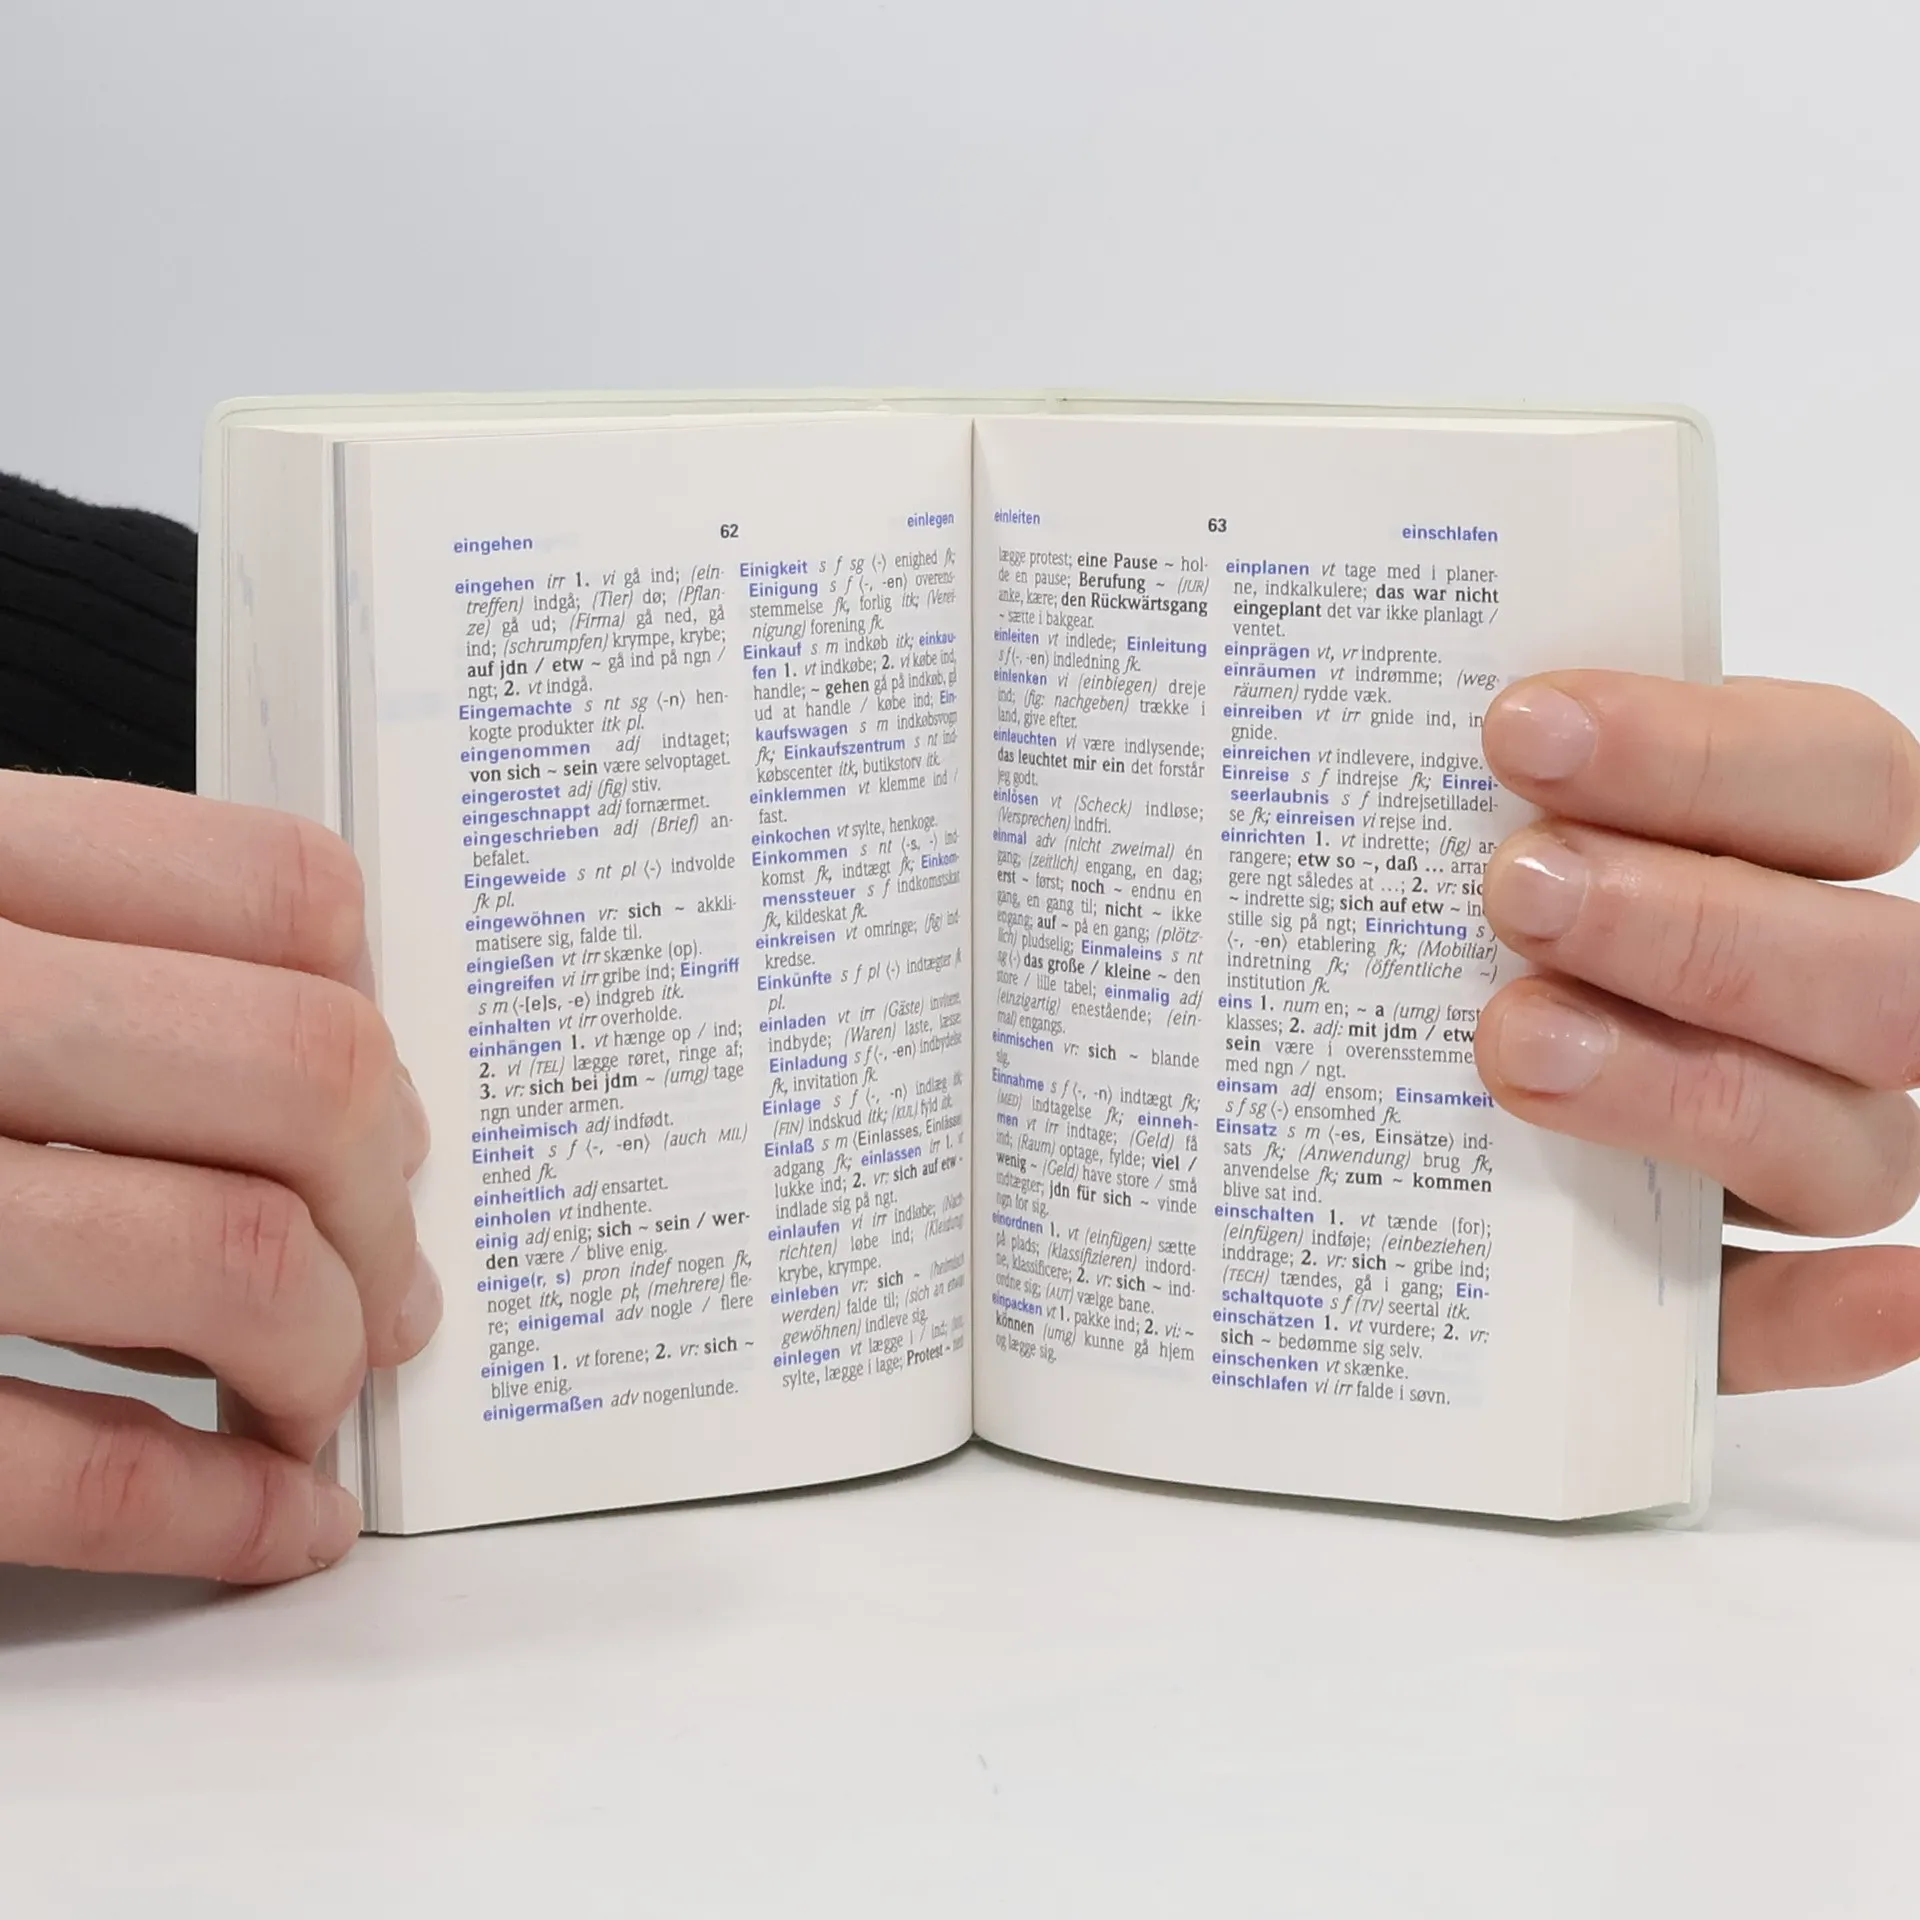 eingehen 62 einlegen
eingehen irr 1. vi gå ind; (ein-
treffen) indgå; (Tier) dø; (Pflan-
ze) gå ud; (Firma) gå ned, gå
ind; (schrumpfen) krympe, krybe;
auf jdn / etw ~ gå ind på ngn /
ngt; 2. vt indgå.
Eingemachte s nt sg ⟨-n⟩ hen-
kogte produkter itk pl.
eingenommen adj indtaget;
von sich ~ sein være selvoptaget.
eingerostet adj (fig) stiv.
eingeschnappt adj fornærmet.
eingeschrieben adj (Brief) an-
befalet.
Eingeweide s nt pl ⟨-⟩ indvolde
fk pl.
eingewöhnen vr: sich ~ akkli-
matisere sig, falde til.
eingießen vt irr skænke (op).
eingreifen vi irr gribe ind; Eingriff
s m ⟨-[e]s, -e⟩ indgreb itk.
einhalten vt irr overholde.
einhängen 1. vt hænge op / ind;
2. vi (TEL) lægge røret, ringe af;
3. vr: sich bei jdm ~ (umg) tage
ngn under armen.
einheimisch adj indfødt.
Einheit s f ⟨-, -en⟩ (auch MIL)
enhed fk.
einheitlich adj ensartet.
einholen vt indhente.
einig adj enig; sich ~ sein / wer-
den være / blive enig.
einige(r, s) pron indef nogen fk,
noget itk, nogle pl; (mehrere) fle-
re; einigemal adv nogle / flere
gange.
einigen 1. vt forene; 2. vr: sich ~
blive enig.
einigermaßen adv nogenlunde.
Einigkeit s f sg ⟨-⟩ enighed fk;
Einigung s f ⟨-, -en⟩ overens-
stemmelse fk, forlig itk; (Verei-
nigung) forening fk.
Einkauf s m indkøb itk; einkau-
fen 1. vt indkøbe; 2. vi købe ind,
handle; ~ gehen gå på indkøb, gå
ud at handle / købe ind; Ein-
kaufswagen s m indkøbsvogn
fk; Einkaufszentrum s nt ind-
købscenter itk, butikstorv itk.
einklemmen vt klemme ind /
fast.
einkochen vt sylte, henkoge.
Einkommen s nt ⟨-s, -⟩ ind-
komst fk, indtægt fk; Einkom-
menssteuer s f indkomstskat
fk, kildeskat fk.
einkreisen vt omringe; (fig) ind-
kredse.
Einkünfte s f pl ⟨-⟩ indtægter fk
pl.
einladen vt irr (Gäste) invitere,
indbyde; (Waren) laste, læsse.
Einladung s f ⟨-, -en⟩ indbydelse
fk, invitation fk.
Einlage s f ⟨-, -n⟩ indlæg itk;
(FIN) indskud itk; (KUL) fyld itk.
Einlaß s m ⟨Einlasses, Einlässe⟩
adgang fk; einlassen irr 1. vt
lukke ind; 2. vr: sich auf etw ~
indlade sig på ngt.
einlaufen vi irr indløbe; (Nach-
richten) løbe ind; (Kleidung)
krybe, krympe.
einleben vr: sich ~ (heimisch
werden) falde til; (sich an etwas
gewöhnen) indleve sig.
einlegen vt lægge i / ind;
sylte, lægge i lage; Protest ~
einleiten 63 einschlafen
lægge protest; eine Pause ~ hol-
de en pause; Berufung ~ (JUR)
anke, kære; den Rückwärtsgang
~ sætte i bakgear.
einleiten vt indlede; Einleitung
s f ⟨-, -en⟩ indledning fk.
einlenken vi (einbiegen) dreje
ind; (fig: nachgeben) trække i
land, give efter.
einleuchten vi være indlysende;
das leuchtet mir ein det forstår
jeg godt.
einlösen vt (Scheck) indløse;
(Versprechen) indfri.
einmal adv (nicht zweimal) én
gang; (zeitlich) engang, en dag;
erst ~ først; noch ~ endnu en
gang, en gang til; nicht ~ ikke
engang; auf ~ på en gang; (plötz-
lich) pludselig; Einmaleins s nt
sg ⟨-⟩ das große / kleine ~ den
store / lille tabel; einmalig adj
(einzigartig) enestående; (ein-
mal) engangs.
einmischen vr: sich ~ blande
sig.
Einnahme s f ⟨-, -n⟩ indtægt fk;
(MED) indtagelse fk; einneh-
men vt irr indtage; (Geld) få
ind; (Raum) optage, fylde; viel /
wenig ~ (Geld) have store / små
indtægter; jdn für sich ~ vinde
ngn for sig.
einordnen 1. vt (einfügen) sætte
på plads; (klassifizieren) indord-
ne, klassificere; 2. vr: sich ~ ind-
ordne sig; (AUT) vælge bane.
einpacken vt 1. pakke ind; 2. vi: ~
können (umg) kunne gå hjem
og lægge sig.
einplanen vt tage med i planer-
ne, indkalkulere; das war nicht
eingeplant det var ikke planlagt /
ventet.
einprägen vt, vr indprente.
einräumen vt indrømme; (weg-
räumen) rydde væk.
einreiben vt irr gnide ind, in
gnide.
einreichen vt indlevere, indgive.
Einreise s f indrejse fk; Einrei-
seerlaubnis s f indrejsetilladel-
se fk; einreisen vi rejse ind.
einrichten 1. vt indrette; (fig) ar-
rangere; etw so ~, daß ... arran
gere ngt således at ...; 2. vr: sic
~ indrette sig; sich auf etw ~ in
stille sig på ngt; Einrichtung s
⟨-, -en⟩ etablering fk; (Mobiliar)
indretning fk; (öffentliche ~)
institution fk.
eins 1. num en; ~ a (umg) først
klasses; 2. adj: mit jdm / etw
sein være i overensstemme
med ngn / ngt.
einsam adj ensom; Einsamkeit
s f sg ⟨-⟩ ensomhed fk.
Einsatz s m ⟨-es, Einsätze⟩ ind-
sats fk; (Anwendung) brug fk,
anvendelse fk; zum ~ kommen
blive sat ind.
einschalten 1. vt tænde (for);
(einfügen) indføje; (einbeziehen)
inddrage; 2. vr: sich ~ gribe ind;
(TECH) tændes, gå i gang; Ein-
schaltquote s f (TV) seertal itk.
einschätzen 1. vt vurdere; 2. vr:
sich ~ bedømme sig selv.
einschenken vt skænke.
einschlafen vi irr falde i søvn.